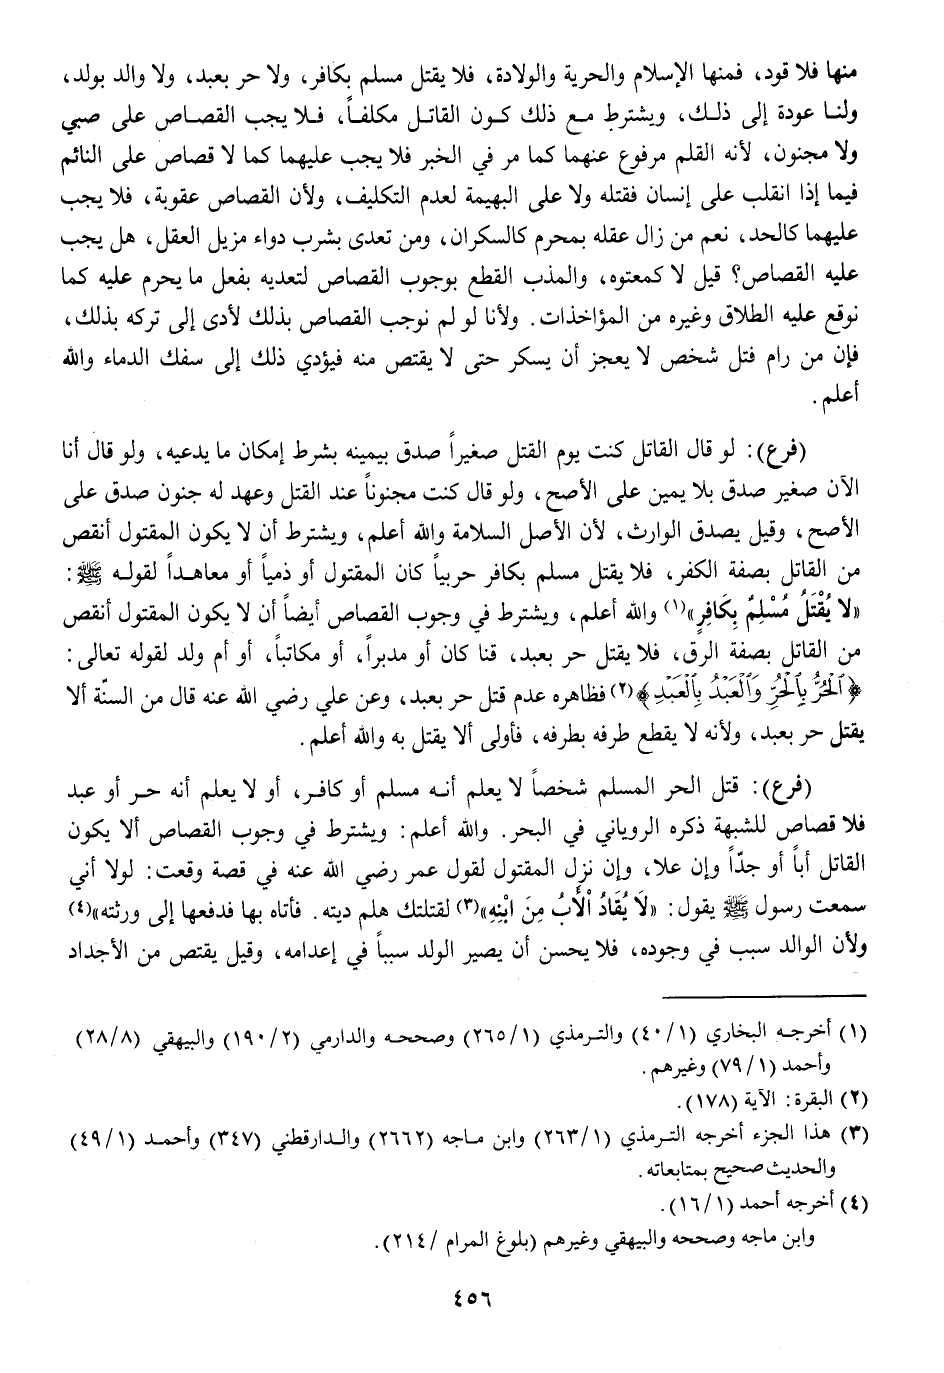 منها فلا قود، فمنها الإسلام والحرية والولادة، فلا يقتل مسلم بكافر، ولا حر بعبد، ولا والد بولد،
ولنا عودة إلى ذلك، ويشترط مع ذلك كون القاتل مكلفاً، فلا يجب القصاص على صبي
ولا مجنون، لأنه القلم مرفوع عنهما كما مر في الخبر فلا يجب عليهما كما لا قصاص على النائم
فيما إذا انقلب على إنسان فقتله ولا على البهيمة لعدم التكليف، ولأن القصاص عقوبة، فلا يجب
عليهما كالحد، نعم من زال عقله بمحرم كالسكران، ومن تعدى بشرب دواء مزيل العقل، هل يجب
عليه القصاص؟ قيل لا كمعتوه، والمذب القطع بوجوب القصاص لتعديه بفعل ما يحرم عليه كما
نوقع عليه الطلاق وغيره من المؤاخذات. ولأنا لو لم نوجب القصاص بذلك لأدى إلى تركه بذلك،
فإن من رام فتل شخص لا يعجز أن يسكر حتى لا يقتص منه فيؤدي ذلك إلى سفك الدماء والله
أعلم.
(فرع): لو قال القاتل كنت يوم القتل صغيراً صدق بيمينه بشرط إمكان ما يدعيه، ولو قال أنا
الآن صغير صدق بلا يمين على الأصح، ولو قال كنت مجنوناً عند القتل وعهد له جنون صدق على
الأصح، وقيل يصدق الوارث، لأن الأصل السلامة والله أعلم، ويشترط أن لا يكون المقتول أنقص
من القاتل بصفة الكفر، فلا يقتل مسلم بكافر حربياً كان المقتول أو ذمياً أو معاهداً لقوله ﷺ:
«لا يُقْتَلُ مُسْلِمٌ بِكَافِرٍ»(١) والله أعلم، ويشترط في وجوب القصاص أيضاً أن لا يكون المقتول أنقص
من القاتل بصفة الرق، فلا يقتل حر بعبد، قنا كان أو مدبراً، أو مكاتباً، أو أم ولد لقوله تعالى:
﴿الْحُرُّ بِالْحُرِّ وَالْعَبْدُ بِالْعَبْدِ﴾(٢) فظاهره عدم قتل حر بعبد، وعن علي رضي الله عنه قال من السنّة ألا
يقتل حر بعبد، ولأنه لا يقطع طرفه بطرفه، فأولى ألا يقتل به والله أعلم.
(فرع): قتل الحر المسلم شخصاً لا يعلم أنه مسلم أو كافر، أو لا يعلم أنه حر أو عبد
فلا قصاص للشبهة ذكره الروياني في البحر. والله أعلم: ويشترط في وجوب القصاص ألا يكون
القاتل أباً أو جدّاً وإن علا، وإن نزل المقتول لقول عمر رضي الله عنه في قصة وقعت: لولا أني
سمعت رسول ﷺ يقول: «لَا يُقَادُ الْأَبُ مِنَ ابْنِهِ»(٣) لقتلتك هلم ديته. فأتاه بها فدفعها إلى ورثته»(٤)
ولأن الوالد سبب في وجوده، فلا يحسن أن يصير الولد سبباً في إعدامه، وقيل يقتص من الأجداد
(١) أخرجه البخاري (٤٠/١) والترمذي (٢٦٥/١) وصححه والدارمي (١٩٠/٢) والبيهقي (٢٨/٨)
وأحمد (٧٩/١) وغيرهم.
(٢) البقرة: الآية (١٧٨).
(٣) هذا الجزء أخرجه الترمذي (٢٦٣/١) وابن ماجه (٢٦٦٢) والدارقطني (٣٤٧) وأحمد (٤٩/١)
والحديث صحيح بمتابعاته.
(٤) أخرجه أحمد (١٦/١).
وابن ماجه وصححه والبيهقي وغيرهم (بلوغ المرام /٢١٤).
٤٥٦